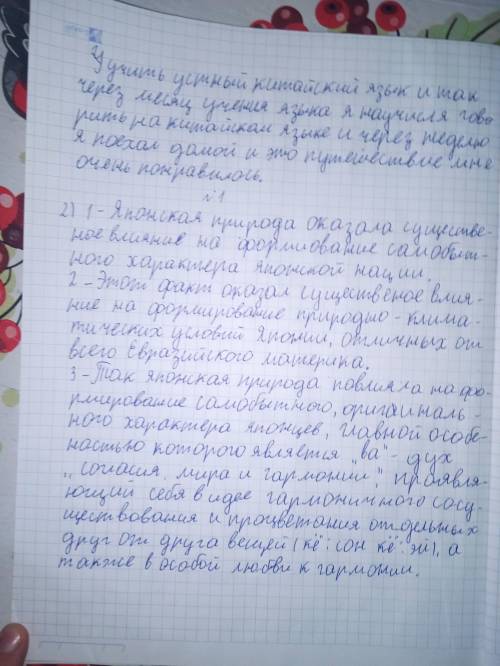 Учить устный китайский язык и так
через месяц учения языка я научился гово
рить на китайкам языке и через неделю
я поехал домой и это путешествие мне
очень понравилось.
№1
2) 1 - Японская природа оказала существе-
ное влияние на формирование самобыт-
ного характера японской нации.
2 - Этот факт оказал существеное влия-
ние на формирование природно-клима-
тических условий Японии, отличных от
всего Евразийского материка.
3 - Так японская природа повлияла на фо-
рмирование самобытного, оригиналь-
ного характера японцев, главной особе-
ностью которого является „ва" - дух
„согласия, мира и гармонии," проявля-
ющий себя в идее гармоничного сосу-
ществования и процветания отдельных
друг от друга вещей (кё:сон кё:эй), а
также в особой любви к гармонии.